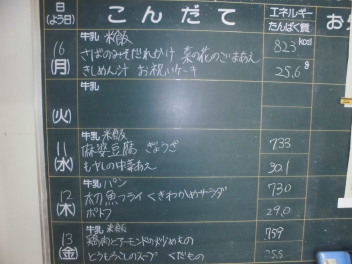 日
(よう日)
こんだて
エネルギー
たんぱく質
16
(月)
牛乳 米飯
さばのみそだれかけ 菜の花のごまあえ
きしめん汁 お祝いケーキ
823 kcal
25.6 g
(火)
牛乳
11
(水)
牛乳 米飯
麻婆豆腐 ぎょうざ
もやしの中華あえ
733
30.1
12
(木)
牛乳 パン
太刀魚フライ くきわかめサラダ
ポトフ
730
29.0
13
(金)
牛乳
鶏肉とアーモンドの炒めもの
とうもろこしのスープ くだもの
759
25.5